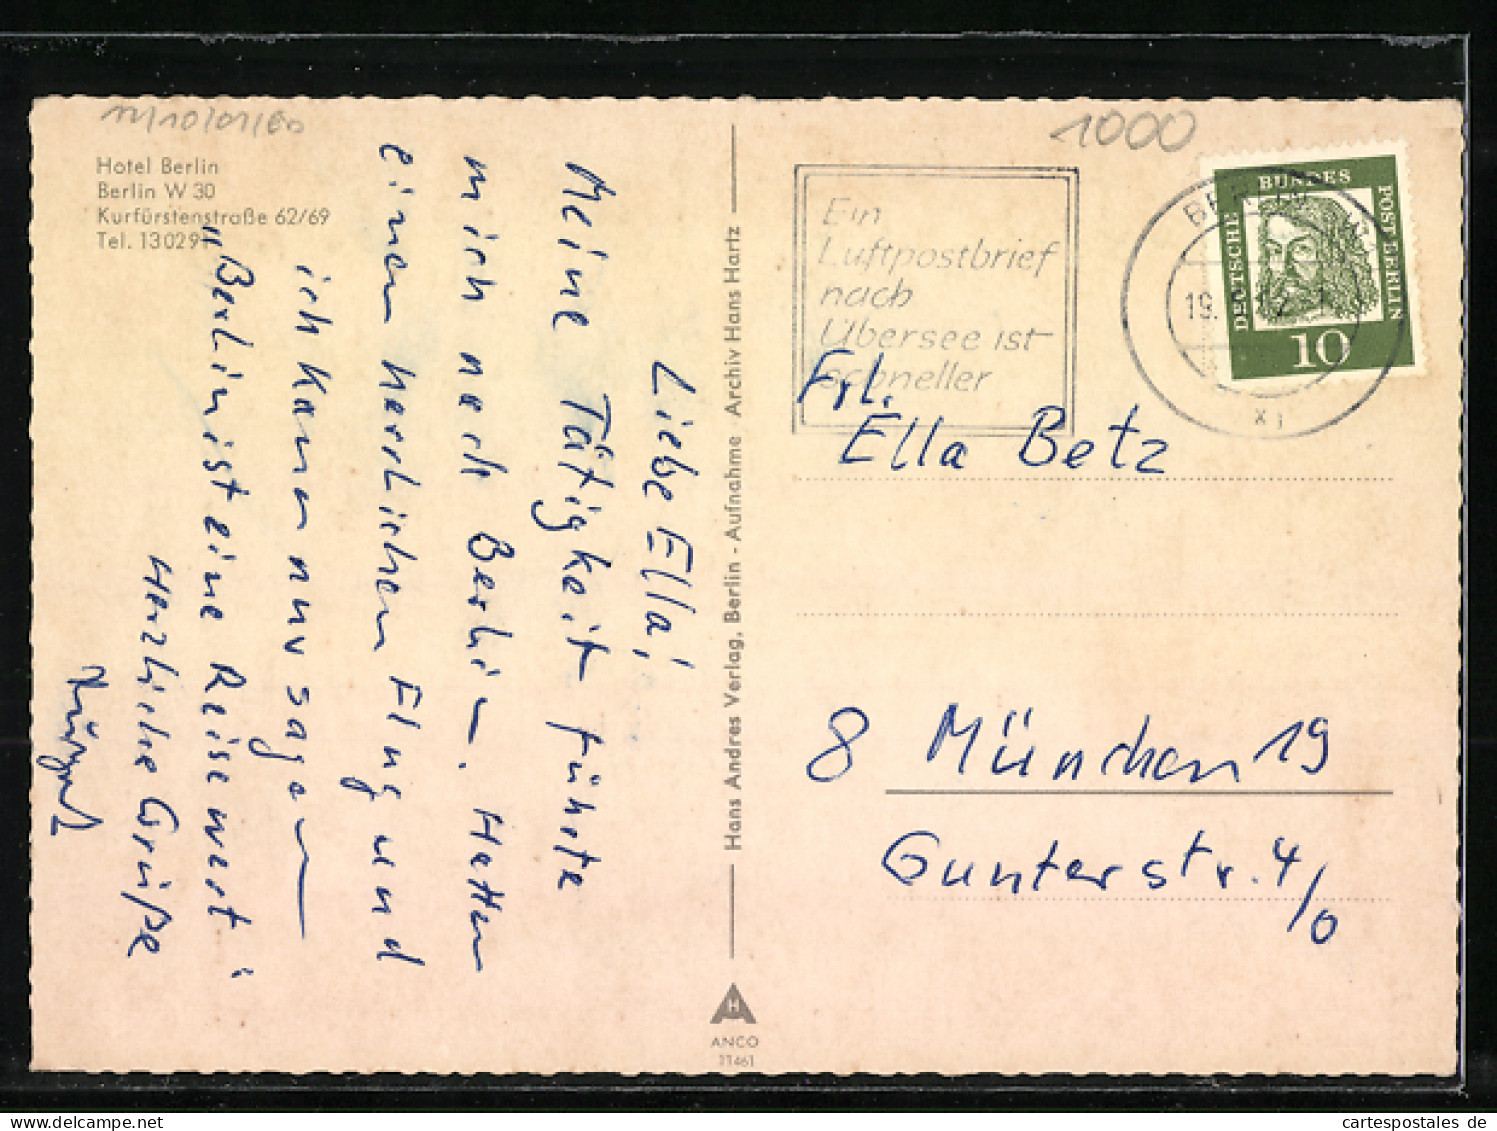 1000
Hotel Berlin
Berlin W 30
Kurfürstenstraße 62/69
Tel. 130291
Liebe Ella!
Meine Tätigkeit führte
mich nach Berlin. Hatten
einen herrlichen Flug und
ich kann nur sagen
"Berlin ist eine Reise wert"
Herzliche Grüße
Hans Andres Verlag, Berlin - Aufnahme · Archiv Hans Hartz
H
ANCO
21461
Ein
Luftpostbrief
nach
Übersee ist
schneller
BERLIN
19.
XI
DEUTSCHE BUNDESPOST BERLIN
10
Frl.
Ella Betz
8 München 19
Gunterstr. 4/0
cartespostales de